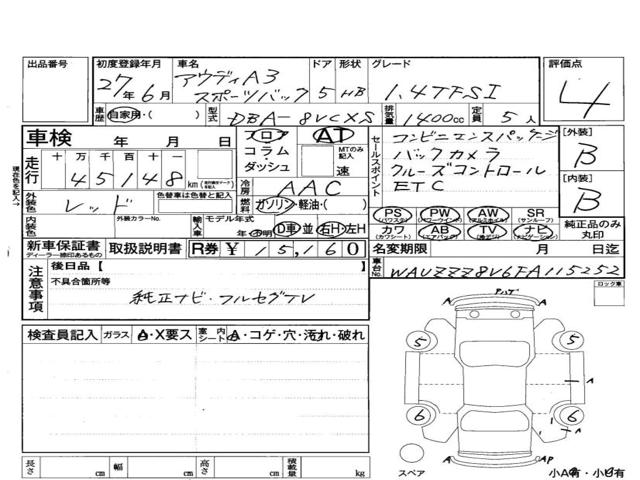 出品番号 初度登録年月 車名 ドア 形状 グレード 評価点
27年 6月 アウディA3 スポーツバック 5 HB 1.4TFSI 4
車歴 自家用・( ) 型式 DBA-8VCXS 排気量 1400cc 定員 5人
車検 年 月 日 シフト フロア コラム・ダッシュ AT MTのみ記入 速
走行 十万千百十一 45148 km
現在色を記入→
外装色 レッド 色替車は色替前の色
冷房 AAC
燃料 ガソリン・軽油・( )
内装色 外装カラーNo. 輸入車 モデル年式 年 D車 並 右H 左H
セールスポイント
コンビニエンスパッケージ
バックカメラ
クルーズコントロール
ETC
[外装] B
[内装] B
PS (パワステ) PW (パワーウインドー) AW (アルミホイル) SR (サンルーフ)
カワ (カワシート) AB (エアバック) TV (純正) ナビ (ナビゲーション)
純正品のみ丸印
新車保証書 ディーラー捺印あるもの 取扱説明書 R券 ¥15,160 名変期限 月 日迄
車台No. WAUZZZ8V6FA115252
注意事項 後日品【 】
不具合箇所等
純正ナビ・フルセグTV
ロック車
検査員記入 ガラス A・X要ス 室内シート A・コゲ・穴・汚れ・破れ
5 5
A
6 6
1
A
A AP
スペア 小A有・小U有
長さ cm 幅 cm 高さ cm 積載量 kg